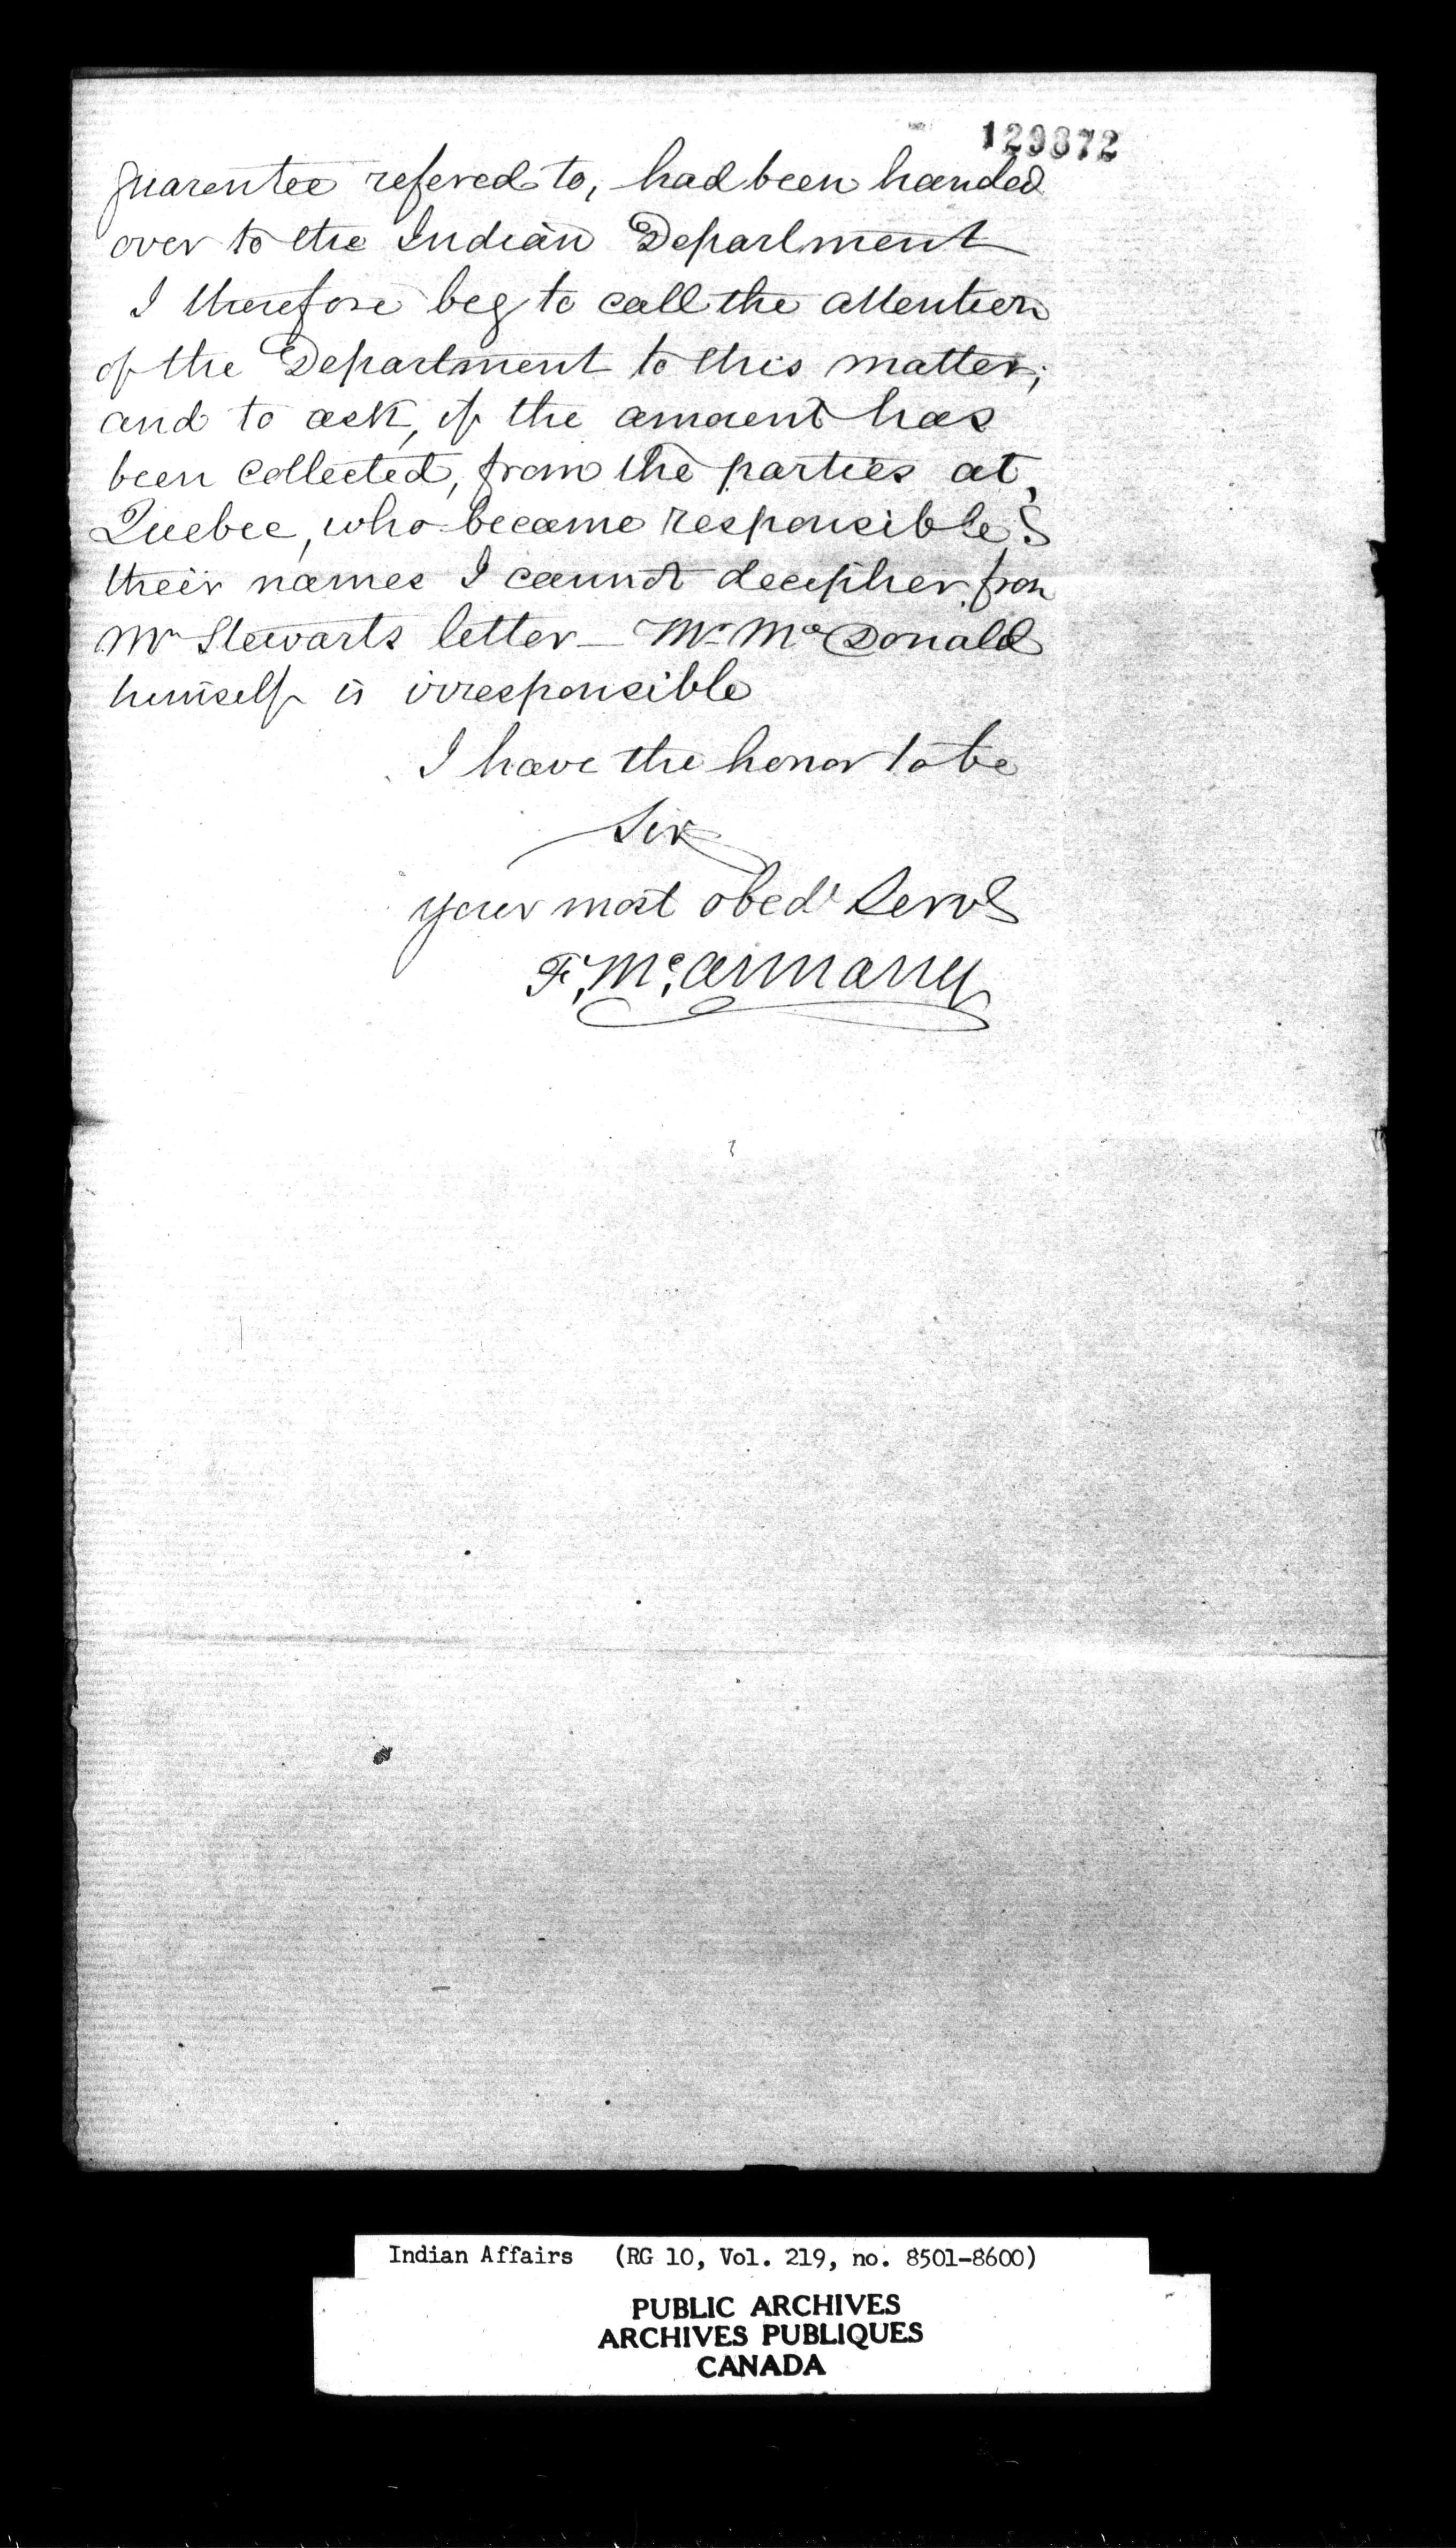 129872
guarentee refered to, had been handed
over to the Indian Department
I therefore beg to call the attention
of the Department to this matter;
and to ask, if the amount has
been collected, from the parties at,
Quebec, who became responsible?
their names I cannot decipher from
Mr Stewarts letter – Mr McDonald
himself is irresponsible
I have the honor to be
Sir
your most obedt Servt
F. Mc.
Indian Affairs (RG 10, Vol. 219, no. 8501-8600)
PUBLIC ARCHIVES
ARCHIVES PUBLIQUES
CANADA